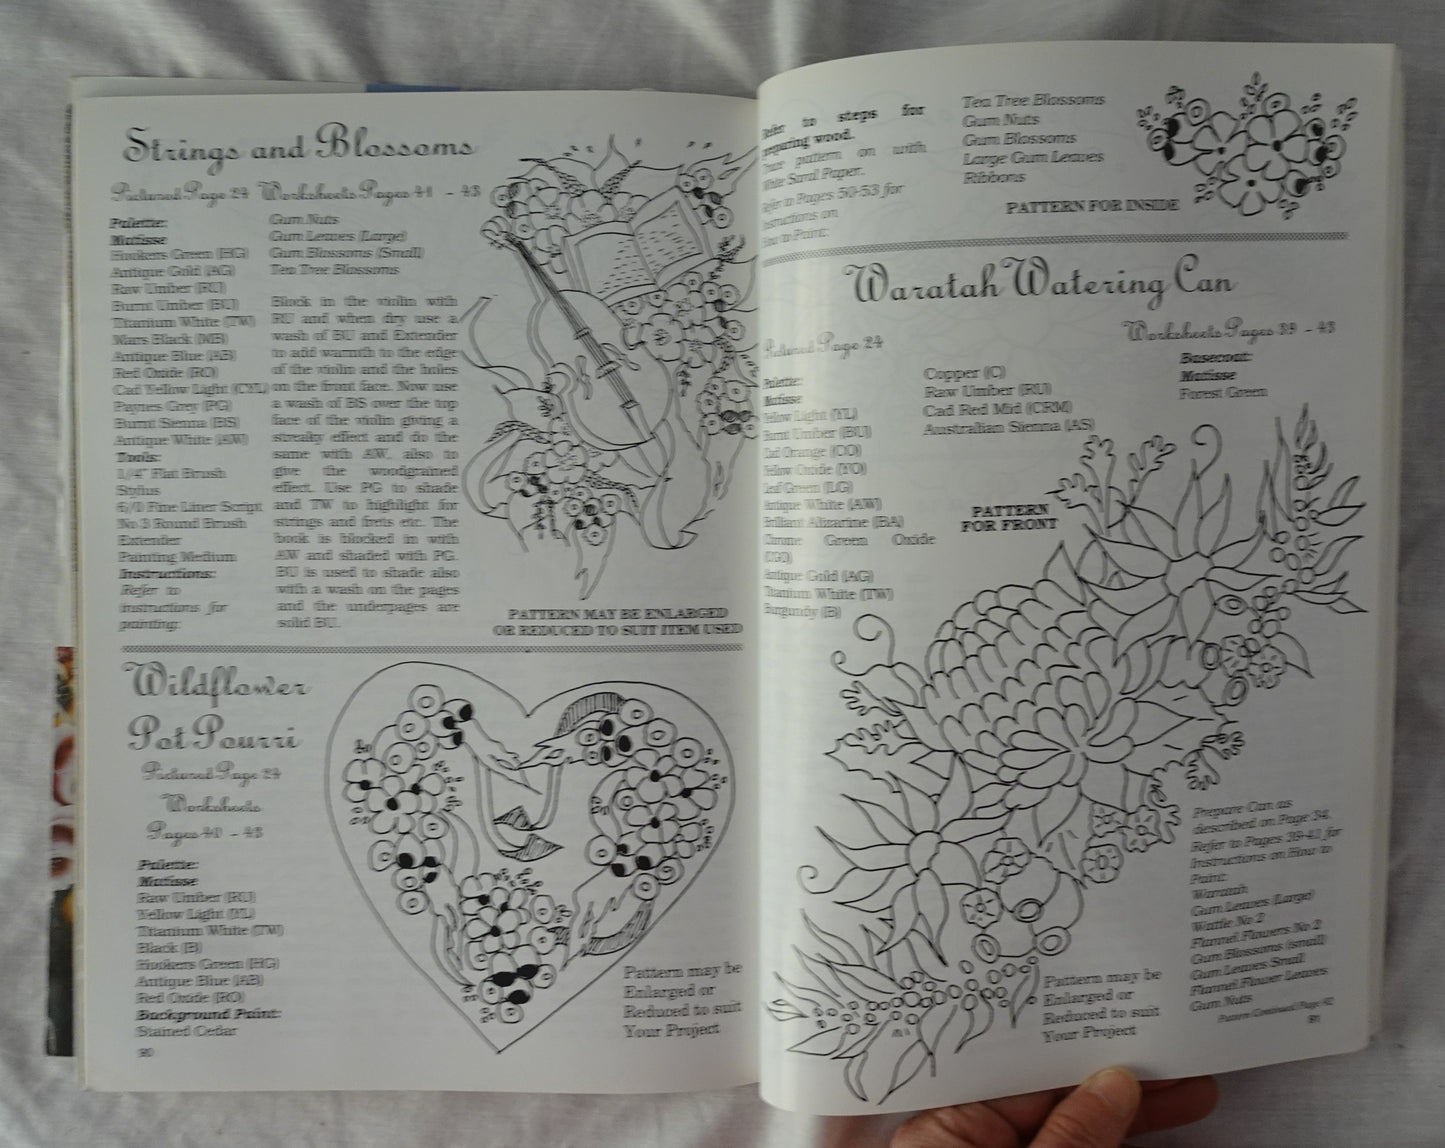 Strings and Blossoms
Pictured Page 24 Worksheets Pages 41 - 43
Palette:
Matisse
Hookers Green (HG)
Antique Gold (AG)
Raw Umber (RU)
Burnt Umber (BU)
Titanium White (TW)
Mars Black (MB)
Antique Blue (AB)
Red Oxide (RO)
Cad Yellow Light (CYL)
Paynes Grey (PG)
Burnt Sienna (BS)
Antique White (AW)
Tools:
1/4" Flat Brush
Stylus
6/0 Fine Liner Script
No 3 Round Brush
Extender
Painting Medium
Instructions:
Refer to
instructions for
painting:
Gum Nuts
Gum Leaves (Large)
Gum Blossoms (Small)
Tea Tree Blossoms
Block in the violin with
RU and when dry use a
wash of BU and Extender
to add warmth to the edge
of the violin and the holes
on the front face. Now use
a wash of BS over the top
face of the violin giving a
streaky effect and do the
same with AW, also to
give the woodgrained
effect. Use PG to shade
and TW to highlight for
strings and frets etc. The
book is blocked in with
AW and shaded with PG.
BU is used to shade also
with a wash on the pages
and the underpages are
solid BU.
PATTERN MAY BE ENLARGED
OR REDUCED TO SUIT ITEM USED
Wildflower
Pot Pourri
Pictured Page 24
Worksheets
Pages 40 - 43
Palette:
Matisse
Raw Umber (RU)
Yellow Light (YL)
Titanium White (TW)
Black (B)
Hookers Green (HG)
Antique Blue (AB)
Red Oxide (RO)
Background Paint:
Stained Cedar
Pattern may be
Enlarged or
Reduced to suit
Your Project
90
Refer to steps for
preparing wood.
Trace pattern on with
White Saral Paper.
Refer to Pages 50-53 for
instructions on
How to Paint:
Tea Tree Blossoms
Gum Nuts
Gum Blossoms
Large Gum Leaves
Ribbons
PATTERN FOR INSIDE
Waratah Watering Can
Pictured Page 24
Worksheets Pages 39 - 43
Palette:
Matisse
Yellow Light (YL)
Burnt Umber (BU)
Cad Orange (CO)
Yellow Oxide (YO)
Leaf Green (LG)
Antique White (AW)
Brilliant Alizarine (BA)
Chrome Green Oxide
Antique Gold (AG)
Titanium White (TW)
Burgundy (B)
Copper (C)
Raw Umber (RU)
Cad Red Mid (CRM)
Australian Sienna (AS)
Basecoat:
Matisse
Forest Green
PATTERN
FOR FRONT
Prepare Can as
described on Page 34.
Refer to Pages 39-41 for
Instructions on How to
Paint:
Waratah
Gum Leaves (Large)
Wattle No 2
Flannel Flowers No 2
Gum Blossoms (small)
Gum Leaves Small
Flannel Flower Leaves
Gum Nuts
Pattern Continued Page 92
Pattern may be
Enlarged or
Reduced to suit
Your Project
91